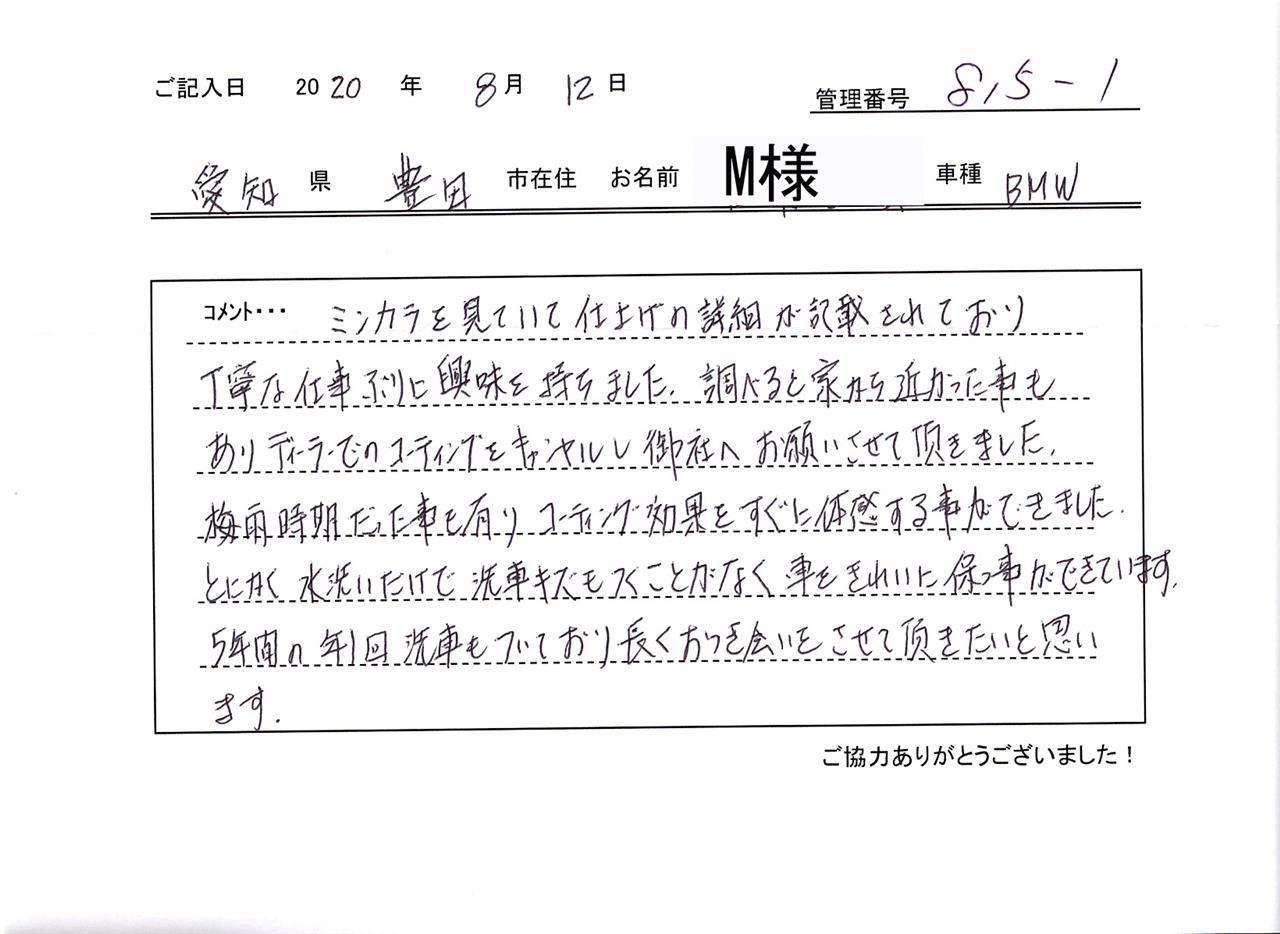 ご記入日 2020 年 8月 12日
管理番号 8,5-1
愛知 県 豊田 市在住 お名前 M様 車種 BMW
コメント・・・ ミンカラを見ていて仕上げの詳細が記載されており
丁寧な仕事ぶりに興味を持ちました。調べると家から近かった事も
ありディーラーでのコーティングをキャンセルし御社へお願いさせて頂きました。
梅雨時期だった事も有りコーティング効果をすぐに体感する事ができました。
とにかく水洗いだけで洗車キズもつくことがなく車をきれいに保つ事ができています。
5年間の年1回洗車もついており長くおつき会いをさせて頂きたいと思い
ます。
ご協力ありがとうございました！